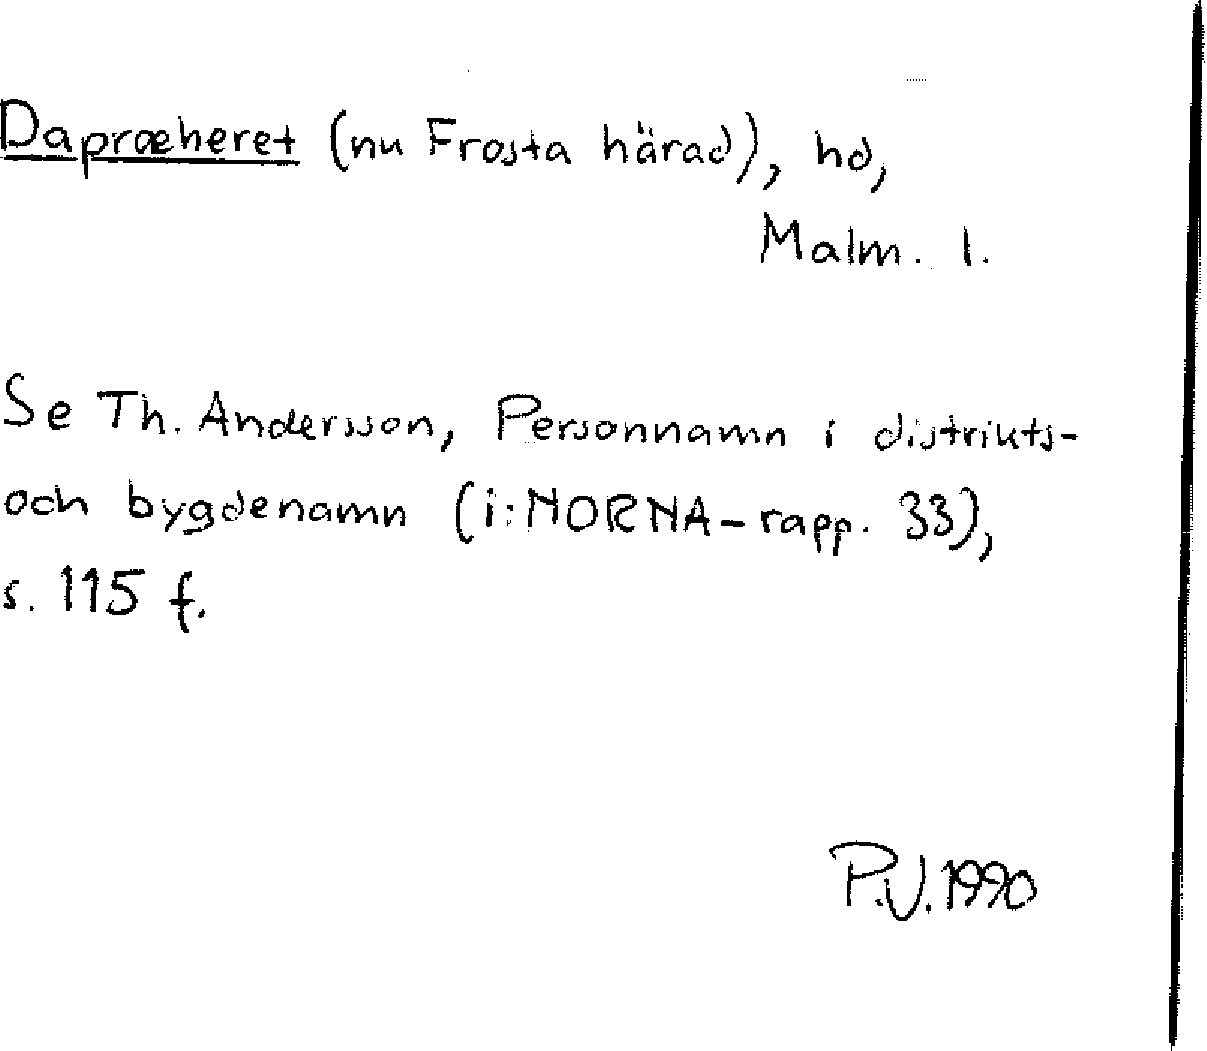 Dapræheret (nu Frosta härad), hd,
Malm. l.
Se Th. Andersson, Personnamn i distrikts-
och bygdenamn (i: NORNA-rapp. 33),
s. 115 f.
P.V. 1990